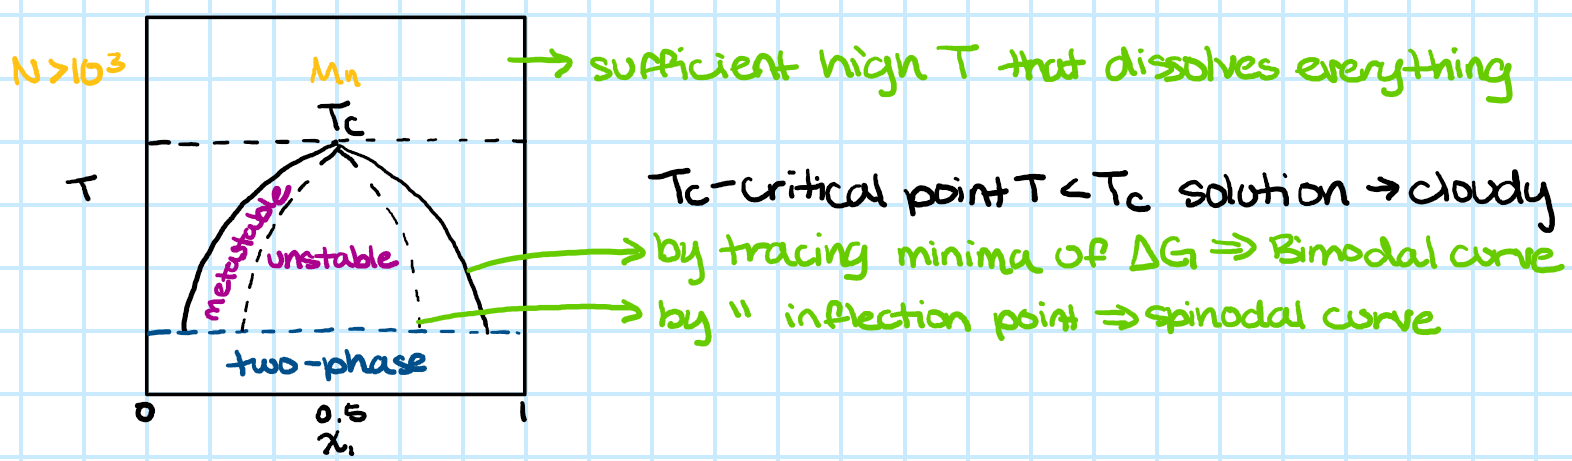 N>10³
Mn
→ sufficient high T that dissolves everything
Tc
T
Tc-critical point T<Tc solution → cloudy
metastable
unstable
by tracing minima of ΔG ⇒ Bimodal curve
by " inflection point ⇒ spinodal curve
two-phase
0 0.5 1
x₁